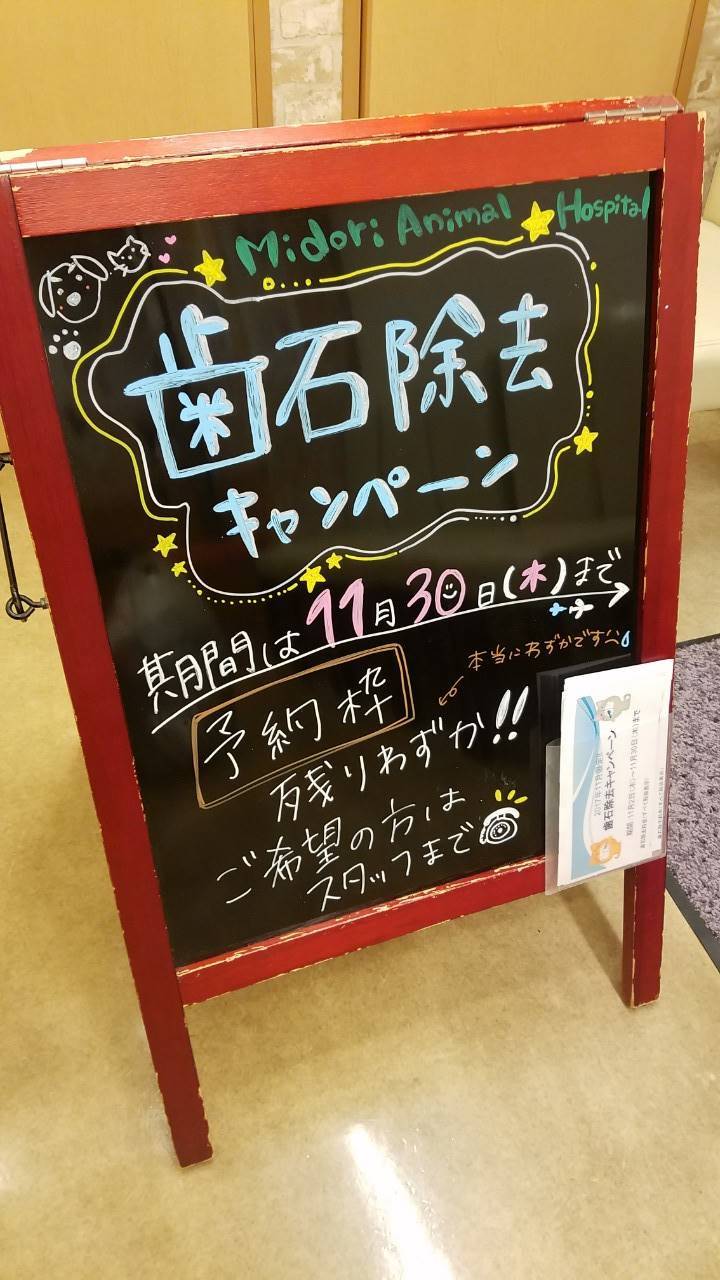 Midori Animal Hospital
歯石除去
キャンペーン
期間は11月30日(木)まで
本当にわずかです
予約枠
残りわずか!!
ご希望の方は
スタッフまで
2017年11月限定!!
歯石除去キャンペーン
期間:11月2日(木)~11月30日(木)まで